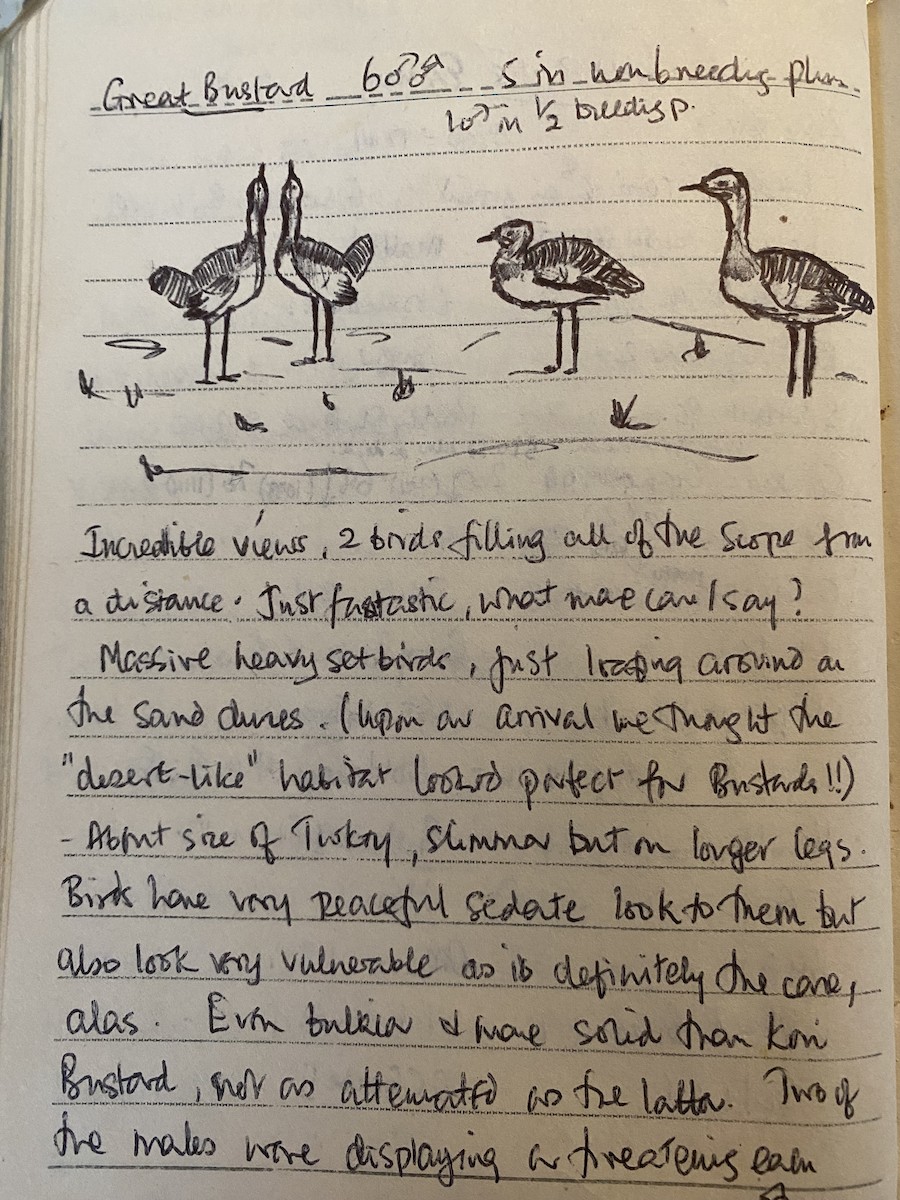 Great Bustard 6♂♂ 5 in non breedig plum.
1♂ in 1/2 breedig p.
Incredible views, 2 birds filling all of the Scope from
a distance. Just fastastic, what more can I say?
Massive heavy set birds, just loafing around on
the sand dunes. (Upon our arrival we thought the
"desert-like" habitat looked perfect for Bustards!!)
- About size of Turkey, slimmer but on longer legs.
Birds have very peaceful sedate look to them but
also look very vulnerable as is definitely the case,
alas. Even bulkier & more solid than Kori
Bustard, not as attenuated as the latter. Two of
the males were displaying or threatening each